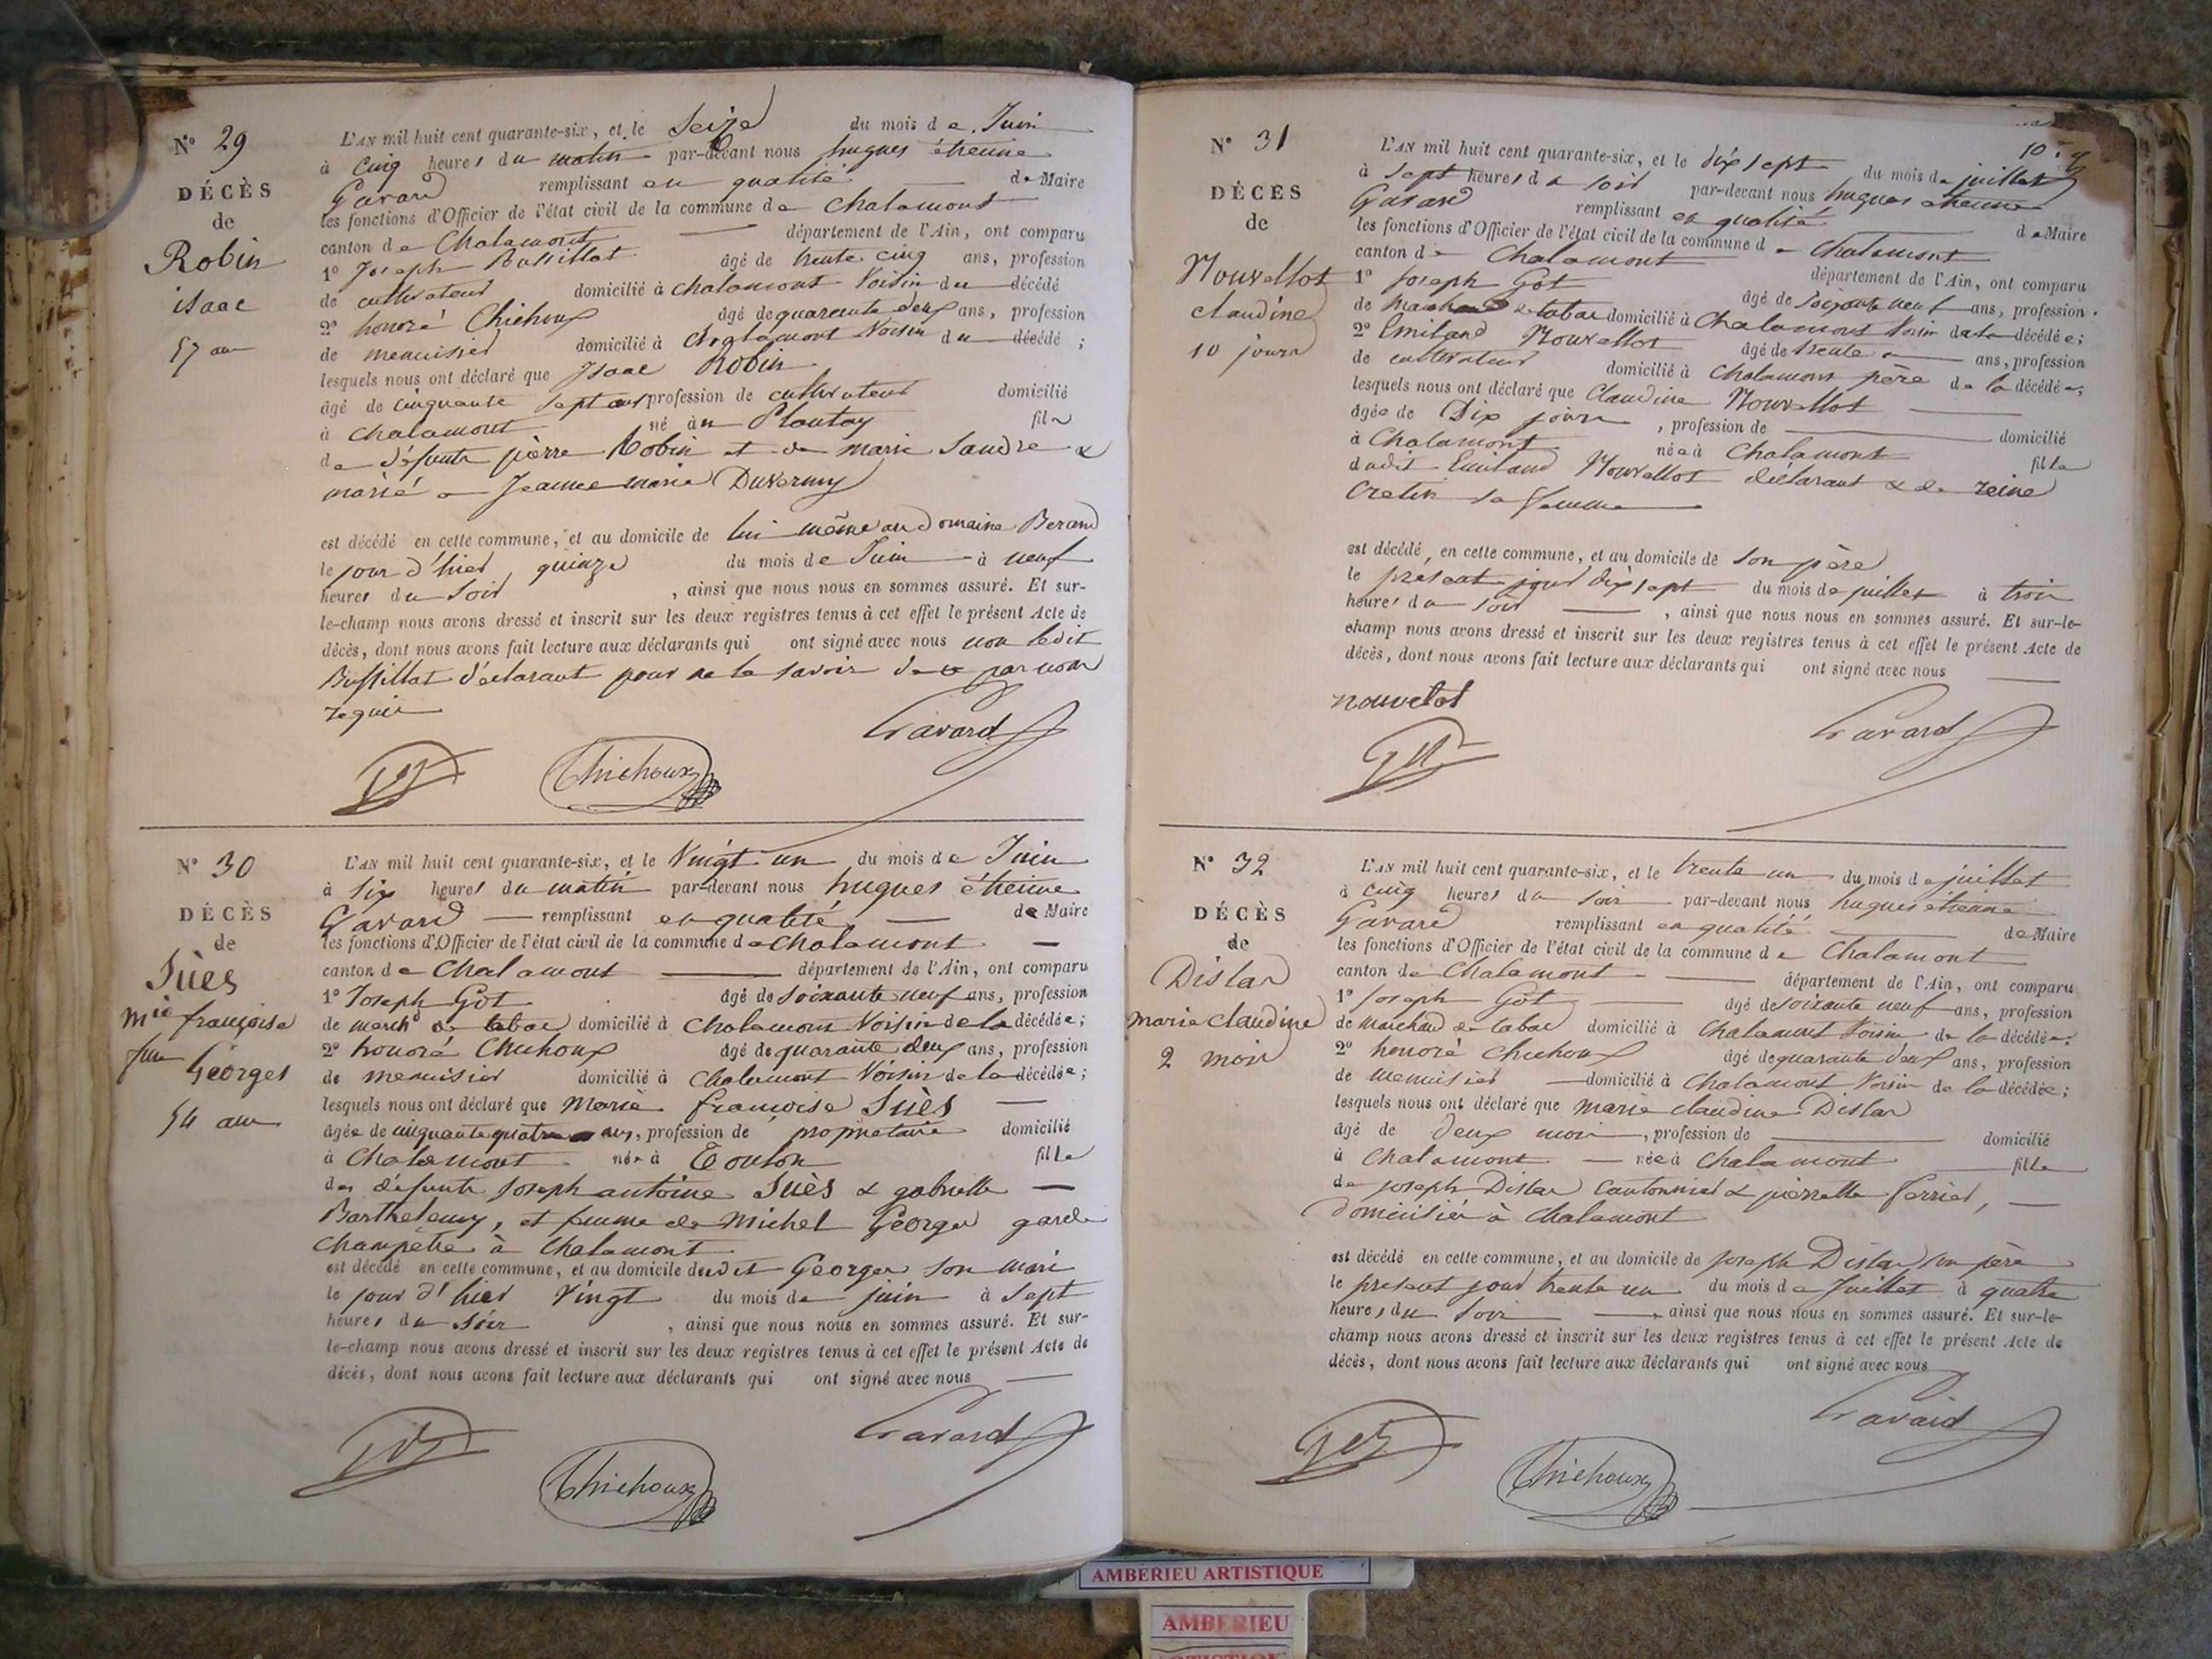 N° 29
DÉCÈS
de
Robin
isaac
57 ans
L'AN mil huit cent quarante-six, et le Seize du mois de Juin
à cinq heures du matin par-devant nous hugues étienne
Gavard remplissant en qualité de Maire
les fonctions d'Officier de l'état civil de la commune de Chalamont
canton de Chalamont département de l'Ain, ont comparu
1° Joseph Bussillat âgé de trente cinq ans, profession
de cultivateur domicilié à chalamont Voisin du décédé
2° honoré Chichoux âgé de quarante deux ans, profession
de menuisier domicilié à Chalamont Voisin du décédé ;
lesquels nous ont déclaré que Isaac Robin
âgé de cinquante sept ans profession de cultivateur domicilié
à chalamont né au Plantay fils
de défunts pierre Robin et de marie Landre &
marié a Jeanne marie Duverny
est décédé en cette commune, et au domicile de lui même au domaine Berand
le jour d'hier quinze du mois de Juin à neuf
heures du soir , ainsi que nous nous en sommes assuré. Et sur-
le-champ nous avons dressé et inscrit sur les deux registres tenus à cet effet le présent Acte de
décès, dont nous avons fait lecture aux déclarants qui ont signé avec nous non ledit
Bussillat déclarant pour ne le savoir de ce par nous
requis
Gavard
Chichoux
N° 30
DÉCÈS
de
Suès
mie françoise
fme Georges
54 ans
L'AN mil huit cent quarante-six, et le Vingt un du mois de Juin
à six heures du matin par-devant nous hugues étienne
Gavard remplissant en qualité de Maire
les fonctions d'Officier de l'état civil de la commune de Chalamont
canton de Chalamont département de l'Ain, ont comparu
1° Joseph Got âgé de soixante neuf ans, profession
de march d de tabac domicilié à Chalamont Voisin de la décédée;
2° honoré Chichoux âgé de quarante deux ans, profession
de menuisier domicilié à Chalamont Voisin de la décédée;
lesquels nous ont déclaré que Marie françoise Suès
âgée de cinquante quatre ans, profession de propriétaire domicilié
à Chalamont née à Toulon fille
des défunts Joseph antoine Suès & gabrielle
Barthelemy, et femme de Michel Georges garde
Champêtre à Chalamont
est décédé en cette commune, et au domicile dudit Georges son mari
le jour d'hier Vingt du mois de juin à Sept
heures du soir , ainsi que nous nous en sommes assuré. Et sur-
le-champ nous avons dressé et inscrit sur les deux registres tenus à cet effet le présent Acte de
décès, dont nous avons fait lecture aux déclarants qui ont signé avec nous
Gavard
Chichoux
10
N° 31
DÉCÈS
de
Nouvellot
claudine
10 jours
L'AN mil huit cent quarante-six, et le dix sept du mois de juillet
à sept heures du soir par-devant nous hugues étienne
Gavard remplissant en qualité de Maire
les fonctions d'Officier de l'état civil de la commune de Chalamont
canton de Chalamont département de l'Ain, ont comparu
1° Joseph Got âgé de soixante neuf ans, profession
de marchand de tabac domicilié à Chalamont Voisin de la décédée;
2° Emiland Nouvellot âgé de trente ans, profession
de cultivateur domicilié à Chalamont père de la décédée;
lesquels nous ont déclaré que Claudine Nouvellot
âgée de Dix jours , profession de domicilié
à Chalamont née à Chalamont fille
dudit Emiland Nouvellot déclarant & de reine
Cretin sa femme
est décédé en cette commune, et au domicile de son père
le présent jour dix sept du mois de juillet à trois
heures du soir , ainsi que nous nous en sommes assuré. Et sur-le-
champ nous avons dressé et inscrit sur les deux registres tenus à cet effet le présent Acte de
décès, dont nous avons fait lecture aux déclarants qui ont signé avec nous
nouvelot
Gavard
N° 32
DÉCÈS
de
Dislar
marie claudine
2 mois
L'AN mil huit cent quarante-six, et le trente un du mois de juillet
à cinq heures du soir par-devant nous hugues étienne
Gavard remplissant en qualité de Maire
les fonctions d'Officier de l'état civil de la commune de Chalamont
canton de Chalamont département de l'Ain, ont comparu
1° Joseph Got âgé de soixante neuf ans, profession
de marchand de tabac domicilié à Chalamont Voisin de la décédée;
2° honoré Chichoux âgé de quarante deux ans, profession
de menuisier domicilié à Chalamont Voisin de la décédée;
lesquels nous ont déclaré que marie claudine Dislar
âgé de deux mois , profession de domicilié
à Chalamont née à Chalamont fille
de joseph Dislar Cantonnier & pierrette ferrier,
domiciliés à Chalamont
est décédé en cette commune, et au domicile de joseph Dislar son père
le présent jour trente un du mois de Juillet à quatre
heures du soir , ainsi que nous nous en sommes assuré. Et sur-le-
champ nous avons dressé et inscrit sur les deux registres tenus à cet effet le présent Acte de
décès, dont nous avons fait lecture aux déclarants qui ont signé avec nous
Gavard
Chichoux
AMBERIEU ARTISTIQUE
AMBERIEU
ARTISTIQUE